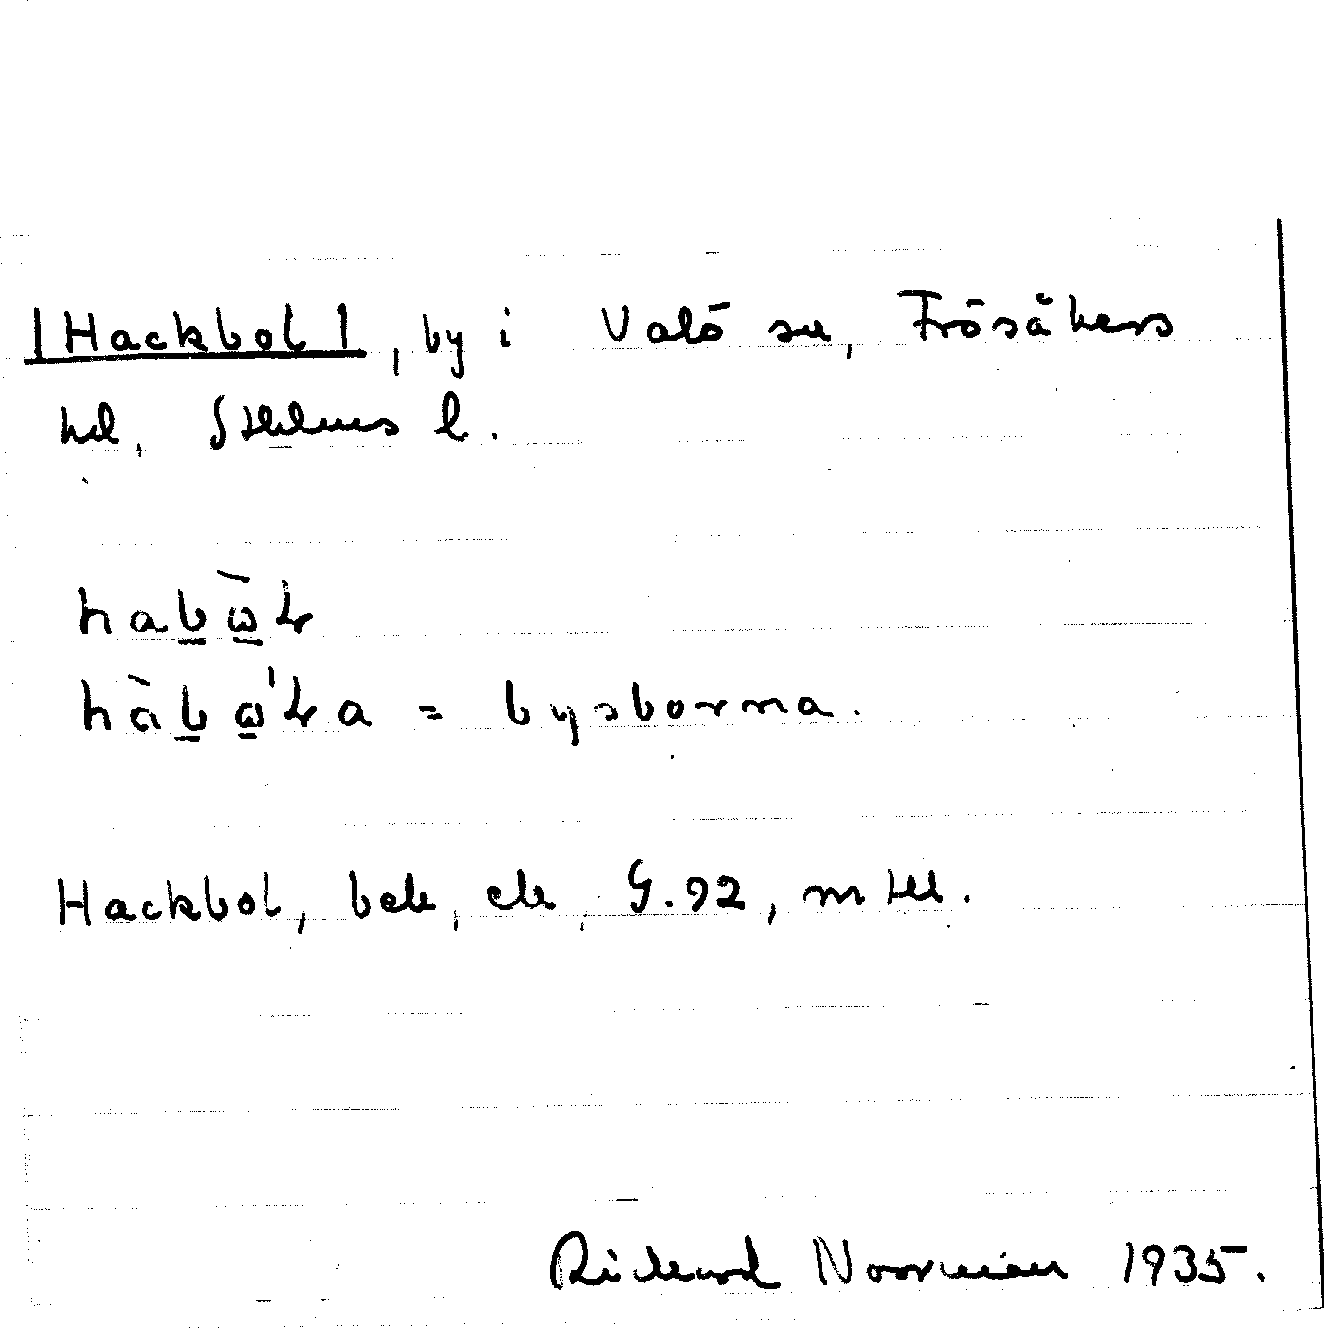 |Hackbol|, by i Valö sn, Frösåkers
hd, Sthlms l.
habὼ̱ɫ
hàbω̱'ɫa = bysborna.
Hackbol, bebl, ek, G.92, mtll.
Rickard Noorman 1935.